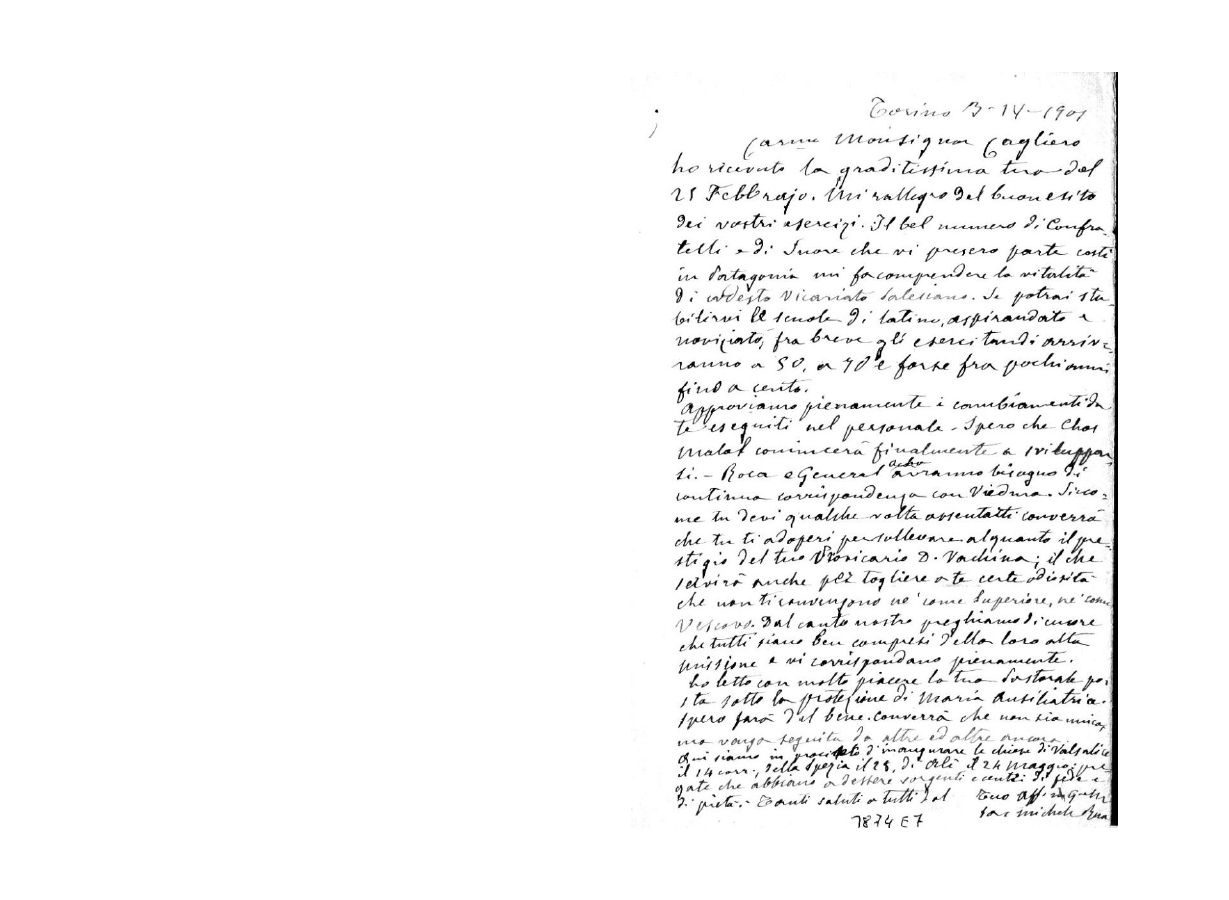 Torino 3-14-1901
Carmo Monsignor Cagliero
ho ricevuto la graditissima tua del
25 Febbrajo. Mi rallegro del buon esito
dei vostri esercizi. Il bel numero di Confra-
telli e di Suore che vi presero parte costì
in Patagonia mi fa comprendere la vitalità
di codesto Vicariato Salesiano. Se potrai sta-
bilirvi le scuole di latino, aspirandato e
noviziato, fra breve gli esercitandi arrive-
ranno a 50, a 70 e forse fra pochi anni
fino a cento.
Approviamo pienamente i cambiamenti da
te eseguiti nel personale. Spero che Chos
Malal comincerà finalmente a sviluppar-
si. - Roca e General Acha avranno bisogno di
continua corrispondenza con Viedma. Sicco-
me tu devi qualche volta assentarti converrà
che tu ti adoperi per sollevare alquanto il pre-
stigio del tuo Provicario D. Vachina; il che
servirà anche per togliere a te certe odiosità
che non ti convengono nè come Superiore, nè come
Vescovo. Dal canto nostro preghiamo di cuore
che tutti siano ben compresi della loro alta
missione e vi corrispondano pienamente.
ho letto con molto piacere la tua Pastorale po-
sta sotto la protezione di Maria Ausiliatrice.
Spero farà del bene. Converrà che non sia unica,
ma venga seguita da altre ed altre ancora.
Qui siamo in procinto d'inaugurare le chiese di Valsalice
il 14 corr., della Spezia il 28, di Alì il 24 Maggio; pre-
gate che abbiano ad essere sorgenti e centri di fede e
di pietà. - Tanti saluti a tutti dal Tuo aff. in G. e M.
Sac Michele Rua
7874 E7